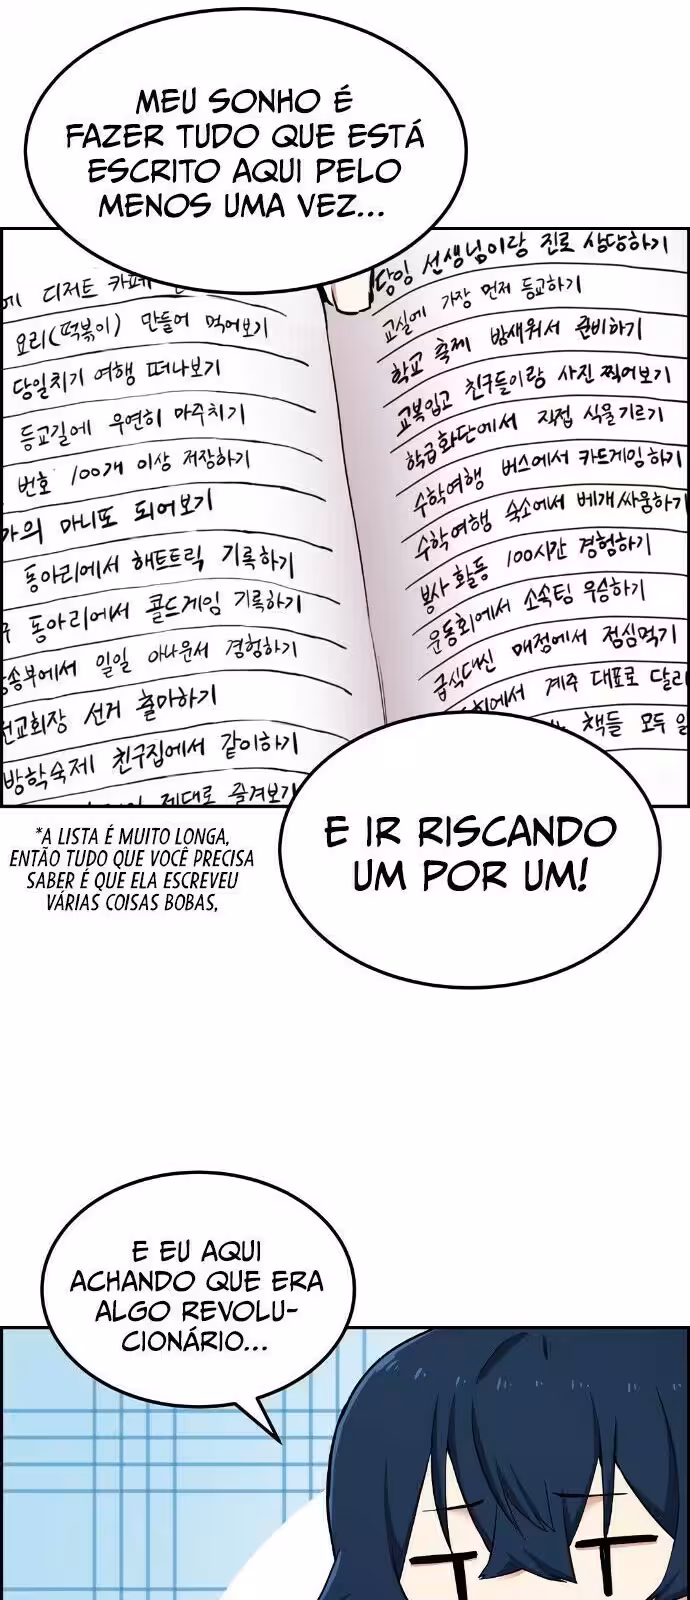 MEU SONHO É
FAZER TUDO QUE ESTÁ
ESCRITO AQUI PELO
MENOS UMA VEZ...
에 디저트 카페
요리(떡볶이) 만들어 먹어보기
당일치기 여행 떠나보기
등교길에 우연히 마주치기
번호 100개 이상 저장하기
가의 마니또 되어보기
동아리에서 해트트릭 기록하기
구 동아리에서 콜드게임 기록하기
송부에서 일일 아나운서 경험하기
전교회장 선거 출마하기
방학숙제 친구집에서 같이하기
제대로 즐겨보기
당임 선생님이랑 진로 상담하기
교실에 가장 먼저 등교하기
학교 축제 밤새워서 준비하기
교복입고 친구들이랑 사진 찍어보기
학급화단에서 직접 식물기르기
수학여행 버스에서 카드게임하기
수학여행 숙소에서 베개싸움하기
봉사 활동 100시간 경험하기
운동회에서 소속팀 우승하기
급식대신 매점에서 점심먹기
회에서 계주 대표로 달리
책들 모두 읽
*A LISTA É MUITO LONGA,
ENTÃO TUDO QUE VOCÊ PRECISA
SABER É QUE ELA ESCREVEU
VÁRIAS COISAS BOBAS,
E IR RISCANDO
UM POR UM!
E EU AQUI
ACHANDO QUE ERA
ALGO REVOLU-
CIONÁRIO...